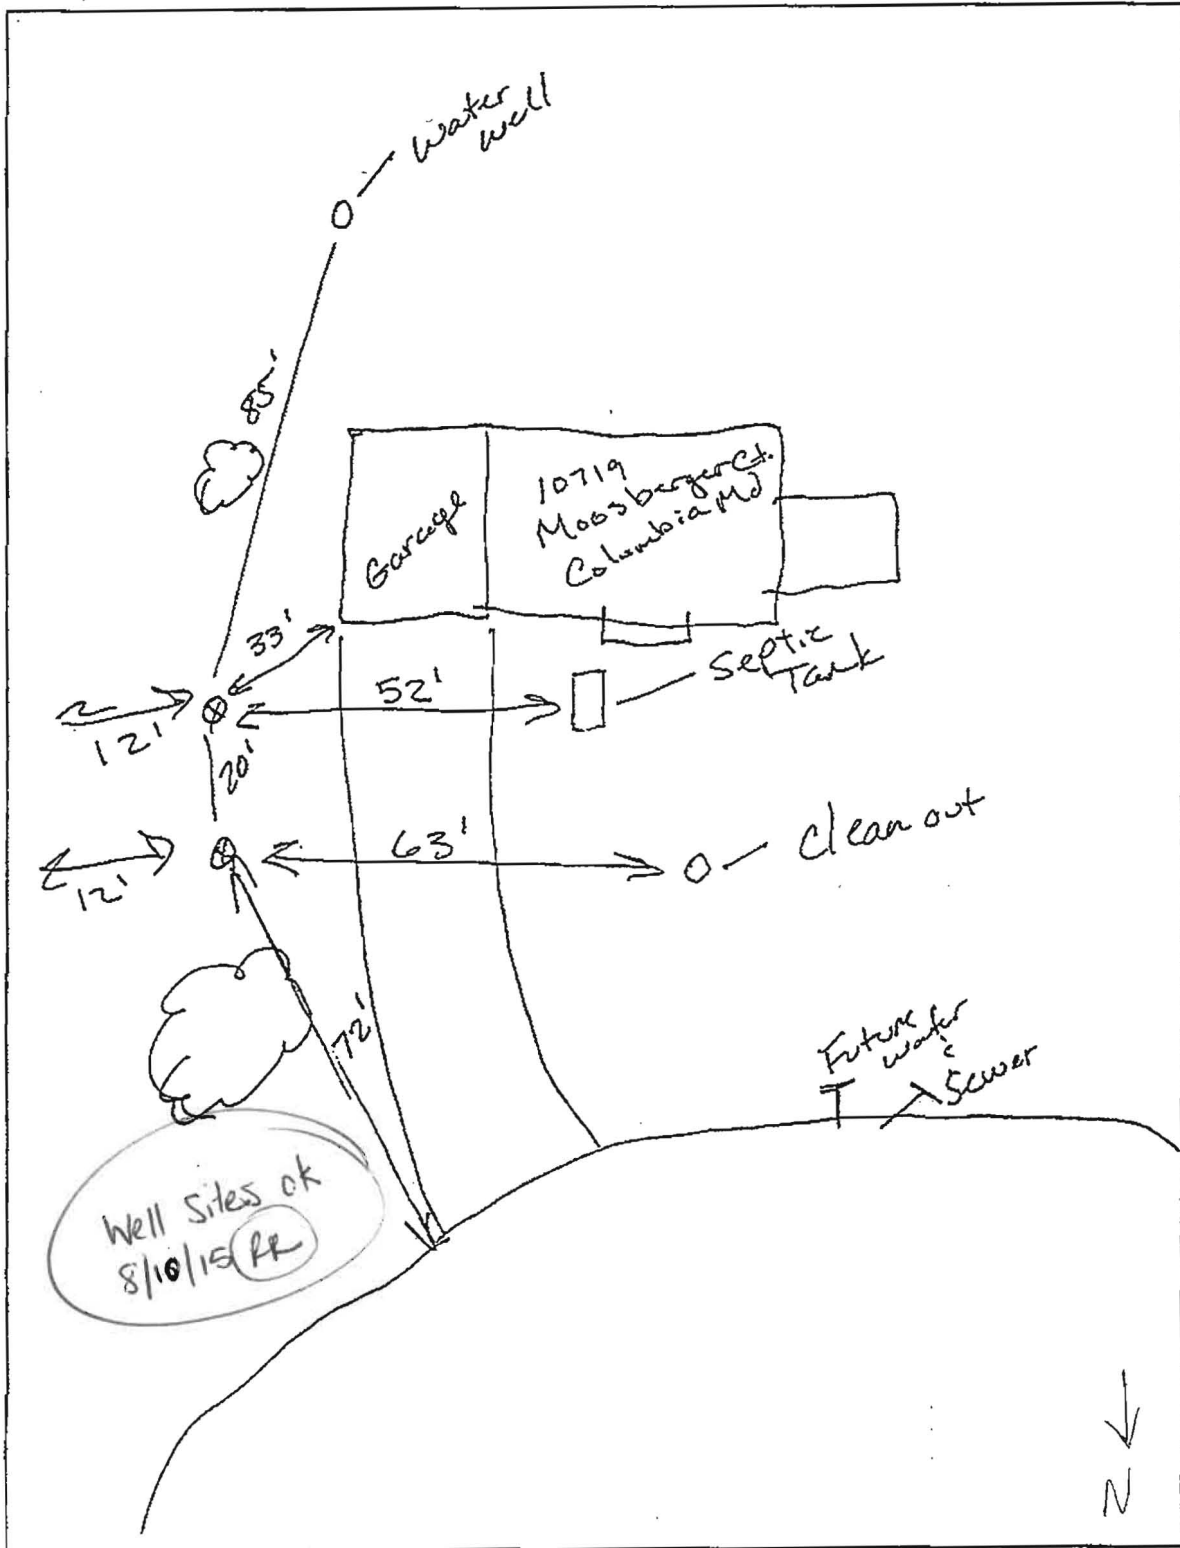 water
well
85'
10719
Moosberger Ct.
Columbia Md
Garage
33'
Septic
Tank
52'
12'
20'
63'
Clean out
12'
72'
Future
water
&
Sewer
Well Sites ok
8/10/15 RR
N